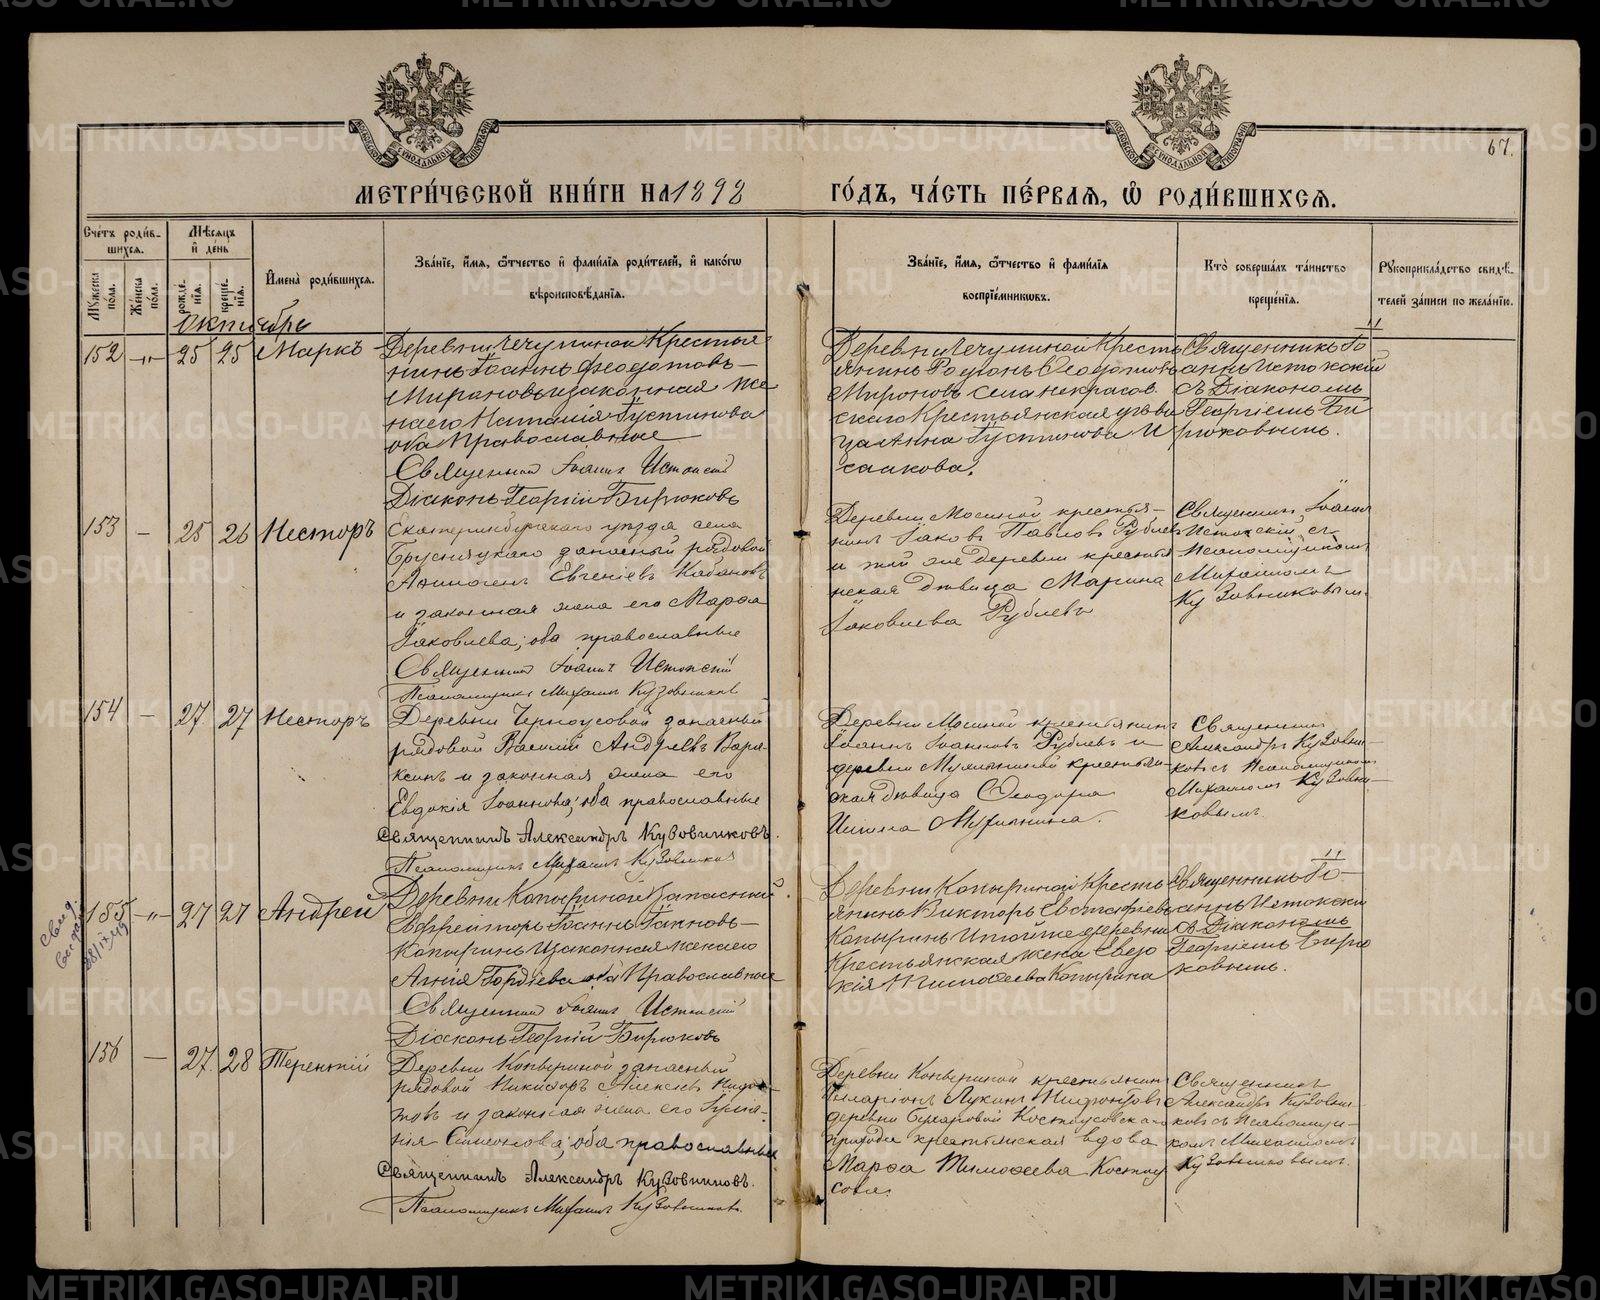 METRIKI.GASO-URAL.RU
67.
МЕТРИ́ЧЕСКОЙ КНИ́ГИ НА 1898
ГО́ДЪ, ЧА́СТЬ ПЕ́РВАЯ, Ѡ РОДИ́ВШИХСЯ.
Сче́тъ роди́в-
шихся.
Мужеска по́ла.
Же́нска по́ла.
Мѣ́сяцъ и де́нь
рожде́нія.
креще́нія.
Имена̀ роди́вшихся.
Зва́ніе, и́мя, ѻ҆́тчество и фами́лія роди́телей, и како́гѡ
вѣроисповѣ́данія.
Зва́ніе, и́мя, ѻ҆́тчество и фами́лія
воспрїе́мниковъ.
Кто̀ соверша́лъ та́инство
креще́нія.
Рукоприкла́дство свидѣ́-
телей за́писи по жела́нію.
Октябрь
152 —"— 25 25 Маркъ
Деревни Чечулиной Крестья
нинъ Іоаннъ Феодотовъ
Мироновъ и законная же
на его Наталія Іустинова
оба Православные
Священник Іоанн Истокский
Діаконъ Георгій Бирюковъ
Деревни Чечулиной Кресть
янинъ Родіонъ Феодотовъ
Мироновъ села Некрасов
скаго Крестьянская дѣви
ца Анна Іустинова И
саакова.
Священникъ Іо
аннъ Истокскій
съ Діакономъ
Георгіемъ Би
рюковымъ.
153 — 25 26 Несторъ
Екатеринбургскаго уѣзда села
Брусянскаго запасный рядовой
Аѳиногенъ Евгеніевъ Кабановъ
и законная жена его Марѳа
Іаковлева; оба православные
Священник Іоанн Истокскій
Псаломщикъ Михаилъ Кузовниковъ
Деревни Мосиной крестья-
нинъ Іаковъ Павловъ Рублевъ
и той же деревни крестья
нская дѣвица Марина
Іаковлева Рублевъ
Священникъ Іоаннъ
Истокскій съ
Псаломщикомъ
Михаиломъ
Кузовниковым.
154 — 27 27 Несторъ
Деревни Черноусовой запасный
рядовой Василій Андреевъ Вара-
ксинъ и законная жена его
Евдокія Іоаннова; оба православные
Священникъ Александръ Кузовниковъ.
Псаломщикъ Михаилъ Кузовников
Деревни Мосиной крестьянинъ
Іоаннъ Іоанновъ Рублевъ и
деревни крестьян-
ская дѣвица Ѳеодора
Священникъ
Александръ Кузовни-
ковъ съ Псаломщикомъ
Михаиломъ Кузовни-
ковымъ.
155 —"— 27 27 Андрей
Деревни Копыриной Запасный
Ефрейторъ Іоаннъ
Копыринъ И законная жена его
Анна Гордіева оба Православные
Священник Іоаннъ Истокскій
Діаконъ Георгій Бирюковъ
Деревни Копыриной Кресть
янинъ Викторъ Евстафіевъ
Копыринъ И той же деревни
Крестьянская жена Евдо
кія Тимоѳеева Копырина
Священникъ Іо-
аннъ Истокскій
съ Діакономъ
Георгіемъ Бирю
ковымъ.
156 — 27 28 Терентій
Деревни Копыриной запасный
рядовой Никифоръ Алексіевъ
и законная жена его
Симеонова; оба православные
Священникъ Александръ Кузовниковъ.
Псаломщикъ Михаилъ Кузовниковъ
Деревни Копыриной крестьянинъ
Иларіонъ Лукинъ
деревни Костоусовской
крестьянская вдова
Марѳа Тимоѳеева Костоу
сова.
Священникъ
Александръ Кузовни-
ковъ съ Псаломщи-
комъ Михаиломъ
Кузовниковымъ.